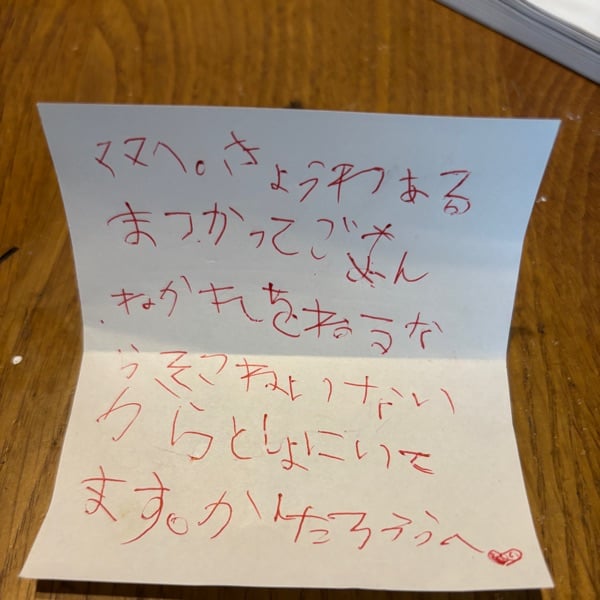 ママへ。きょうわある
まつかってごめん
ねかれしをねるな
らそこねよつない
からとしょにいて
ます。かんたろううへ